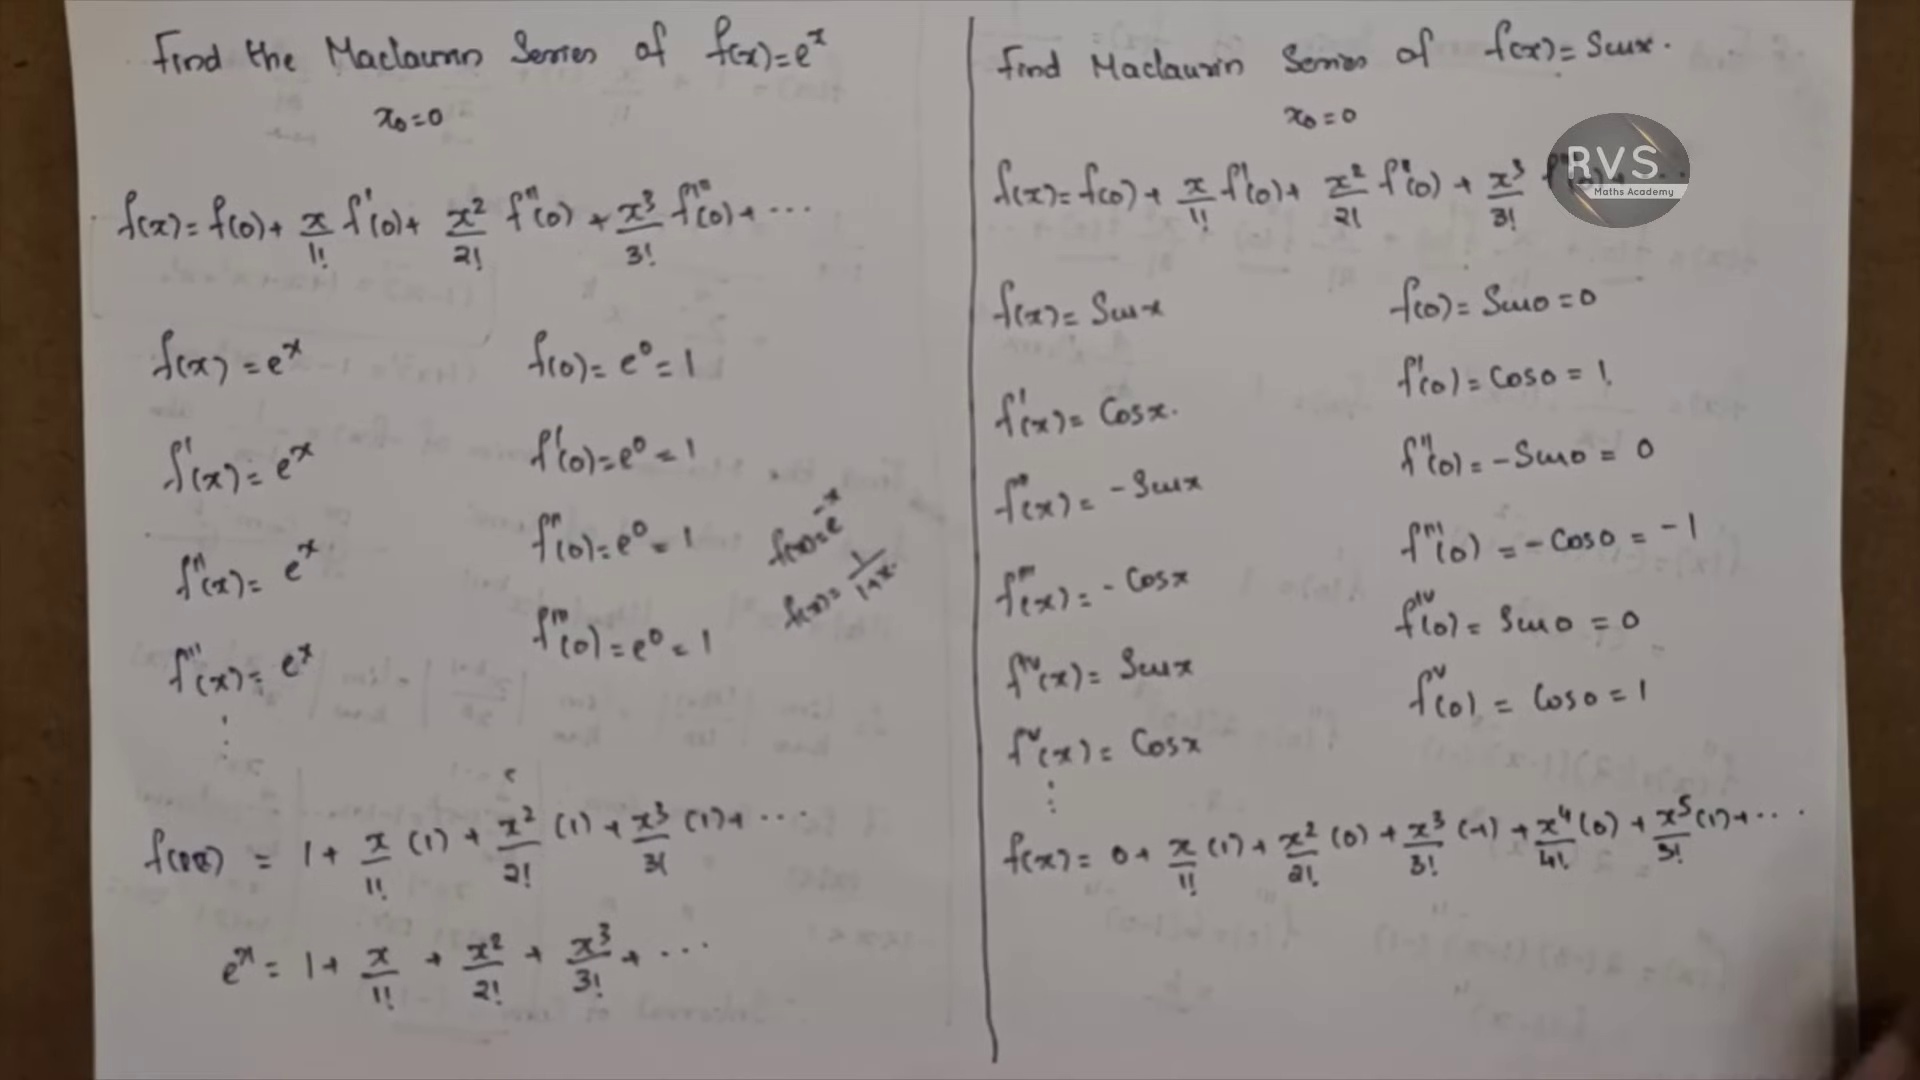 Find the Maclaurin Series of f(x)=e^x
x₀=0
f(x)=f(0)+ x/1! f'(0)+ x²/2! f''(0) + x³/3! f'''(0)+ ...
f(x) = e^x
f(0)= e⁰ = 1
f'(x)= e^x
f'(0)=e⁰ = 1
f''(x)= e^x
f''(0)=e⁰ = 1
f'''(x)= e^x
f'''(0)=e⁰ = 1
f(x)=e^-x
f(x)= 1/1+x.
⋮
= 1+ x/1! (1) + x²/2! (1) + x³/3! (1)+ ...
e^x = 1+ x/1! + x²/2! + x³/3! + ...
Find Maclaurin Series of f(x)= Sinx.
x₀=0
RVS
Maths Academy
f(x)=f(0)+ x/1! f'(0)+ x²/2! f''(0) + x³/3!
f(x)= Sinx
f(0)= Sin0 =0
f'(x)= Cosx.
f'(0)= Cos0 = 1.
f''(x)= -Sinx
f''(0)= -Sin0 = 0
f'''(x)= - Cosx
f'''(0) = - Cos0 = -1
f^iv(x)= Sinx
f^iv(0)= Sin0 = 0
f^v(x)= Cosx
f^v(0) = Cos0 = 1
⋮
f(x)= 0+ x/1! (1)+ x²/2! (0) + x³/3! (-1) + x⁴/4! (0) + x⁵/5! (1)+ ...